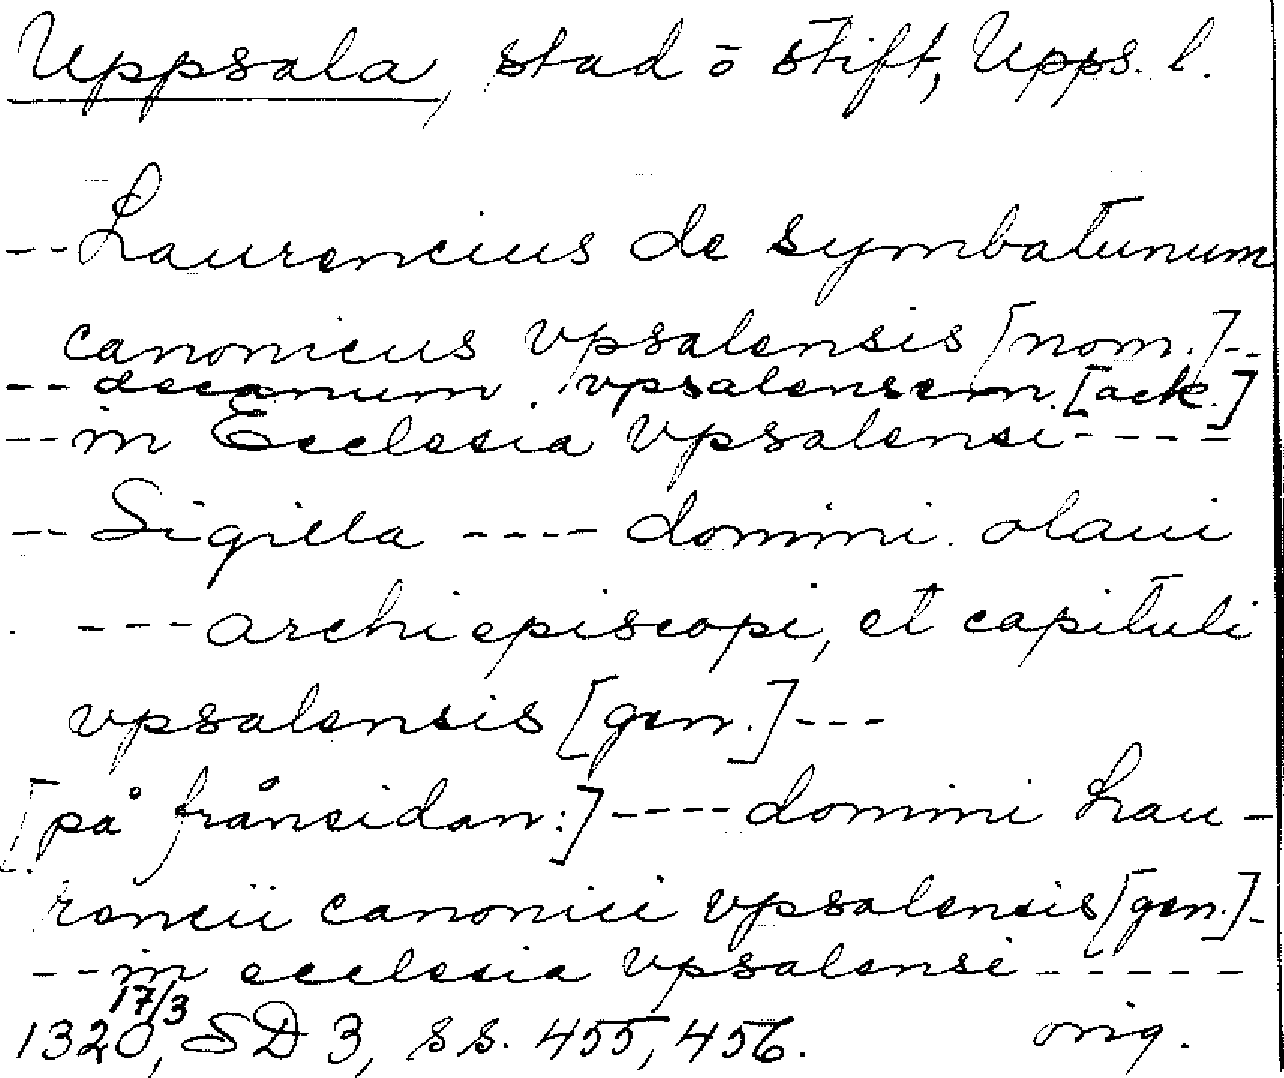 Uppsala, stad o stift, Upps. l.
-- Laurencius de symbatunum
canonicus vpsalensis [nom.]--
-- decanum . vpsalensem [ack.]
-- in Ecclesia vpsalensi ----
-- Sigilla ---- domini. olaui
---archiepiscopi, et capituli
vpsalensis [gen.]---
[på frånsidan:] ---- domini Lau-
rencii canonici vpsalensis [gen.]-
-- in ecclesia vpsalensi ------
1320 17/3, SD 3, ss. 455, 456. orig.